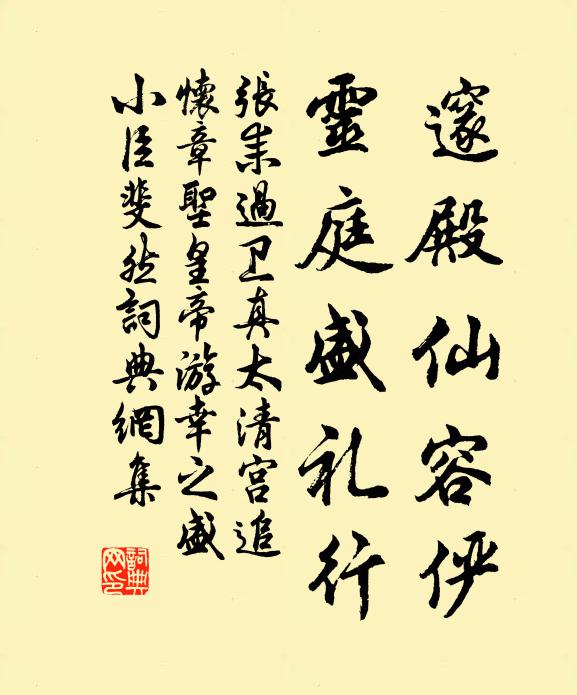 邃殿仙容俨
靈庭盛礼行
張耒過卫真太清宫追
懷章聖皇帝游幸之盛
小臣斐然詞典網集
詞典网印